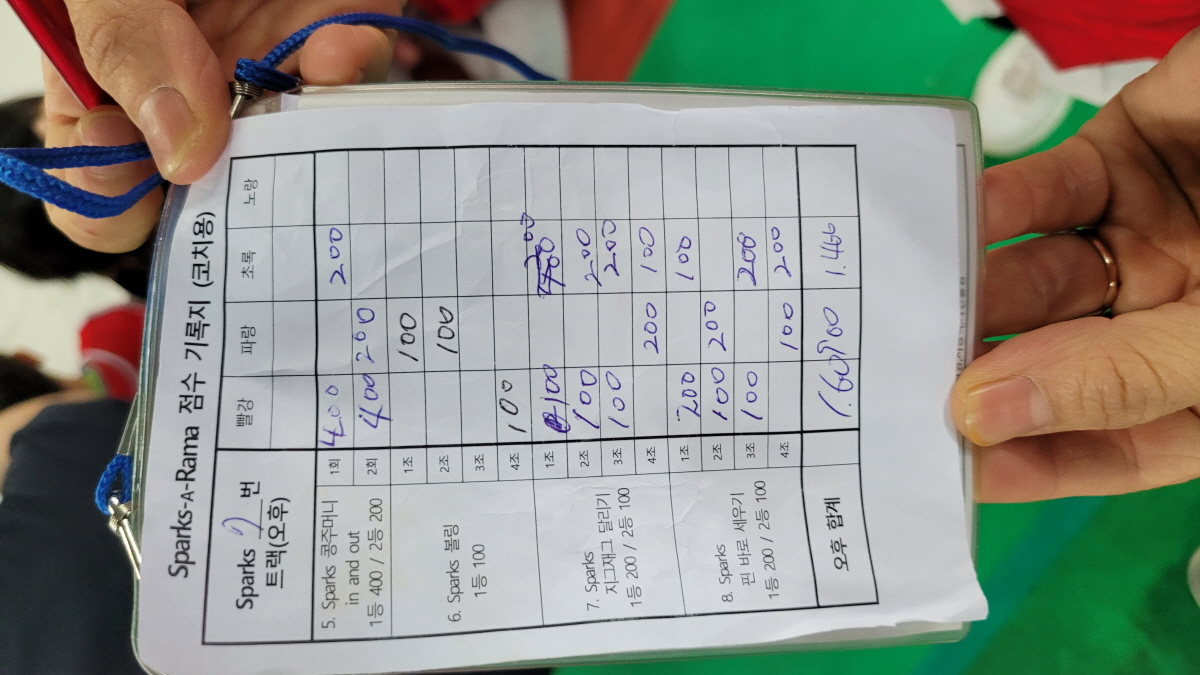 Sparks-A-Rama 점수 기록지 (코치용)
Sparks 번 빨강 파랑 초록 노랑
트랙(오후)
5. Sparks 콩주머니
in and out
1등 400 / 2등 200
1회 400 200
2회 400 200
6. Sparks 볼링
1등 100
1조 100
2조 100
3조
4조 100
7. Sparks
지그재그 달리기
1등 200 / 2등 100
1조 100 200
2조 100 200
3조 100 200
4조 200 100
8. Sparks
핀 바로 세우기
1등 200 / 2등 100
1조 200 100
2조 100 200
3조 100 200
4조 100 200
오후 합계 1.600 900 1.400